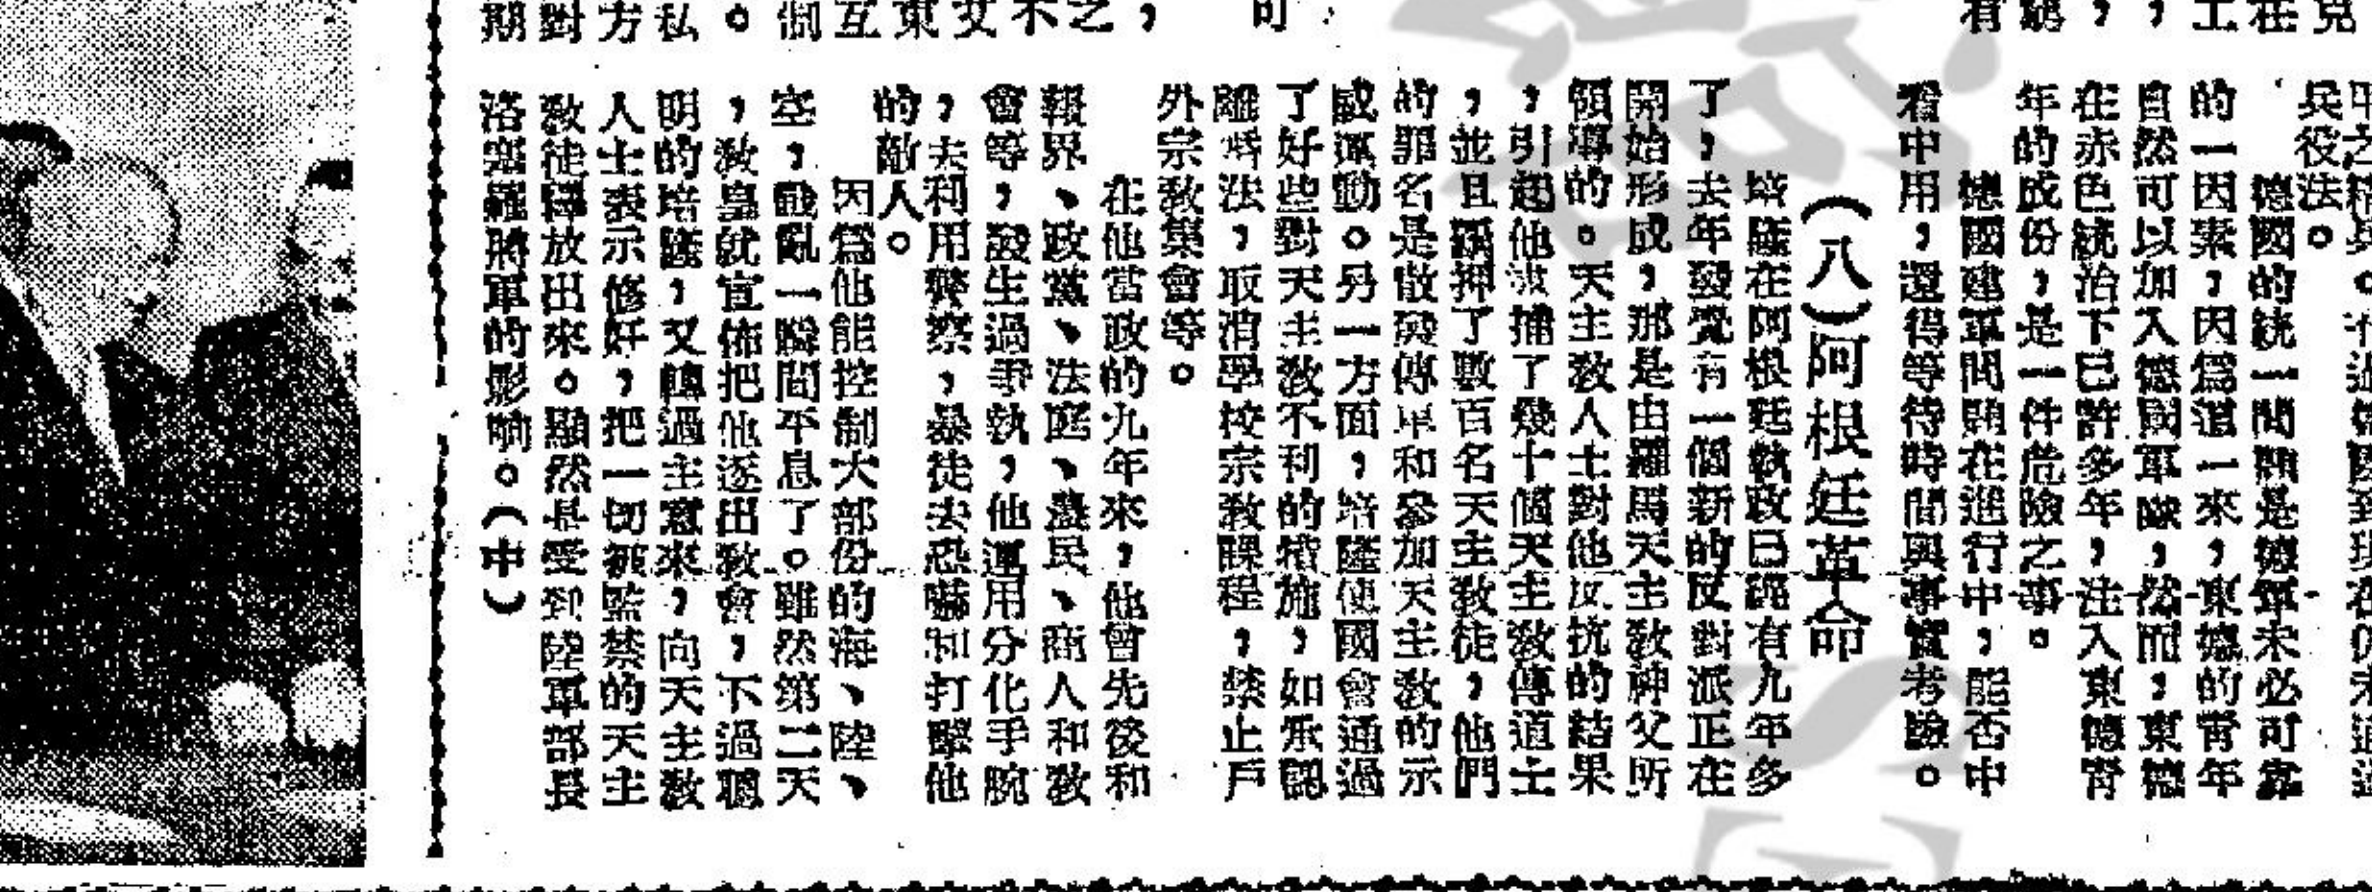 兵役法。
德國的統一問題是德軍未必可靠
的一因素，因爲這一來，東德的青年
自然可以加入德國軍隊，然而，東德
在赤色統治下已許多年，注入東德青
年的成份，是一件危險之事。
德國建軍問題在進行中，能否中
看中用，還得等待時間與事實考驗。
（八）阿根廷革命
培薩在阿根廷執政已經有九年多
了，去年發覺有一個新的反對派正在
開始形成，那是由羅馬天主教神父所
領導的。天主教人士對他反抗的結果
，引起他逮捕了幾十個天主教傳道士
，並且羈押了數百名天主教徒，他們
的罪名是散發傳單和參加天主教的示
威運動。另一方面，培薩使國會通過
了好些對天主教不利的措施，如承認
離婚法，取消學校宗教課程，禁止戶
外宗教集會等。
在他當政的九年來，他曾先後和
報界、政黨、法庭、農民、商人和教
會等，發生過爭執，他運用分化手腕
，去利用警察，暴徒去恐嚇和打擊他
的敵人。
因爲他能控制大部份的海、陸、
空，戰亂一瞬間平息了。雖然第二天
，教皇就宣佈把他逐出教會，不過聰
明的培薩，又轉過主意來，向天主教
人士表示修好，把一切被監禁的天主
教徒釋放出來。顯然是受到陸軍部長
洛羅將軍的影响。（中）